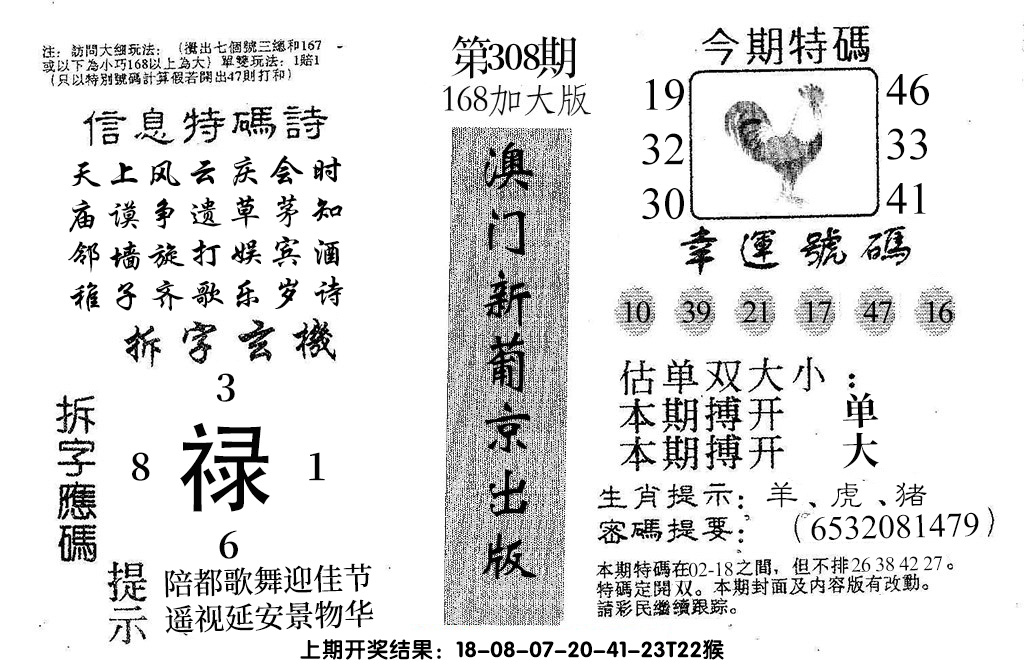 注：訪問大细玩法：（攪出七個號三總和167
或以下為小巧168以上為大）單雙玩法：1賠1
（只以特別號碼計算假若開出47則打和）
信息特碼詩
天上风云庆会时
庙谟争遗草茅知
邻墙旋打娱宾酒
稚子齐歌乐岁诗
拆字玄機
拆字應碼
3
8 禄 1
6
提示
陪都歌舞迎佳节
遥视延安景物华
第308期
168加大版
澳门新葡京出版
今期特碼
19 46
32 33
30 41
幸運號碼
10 39 21 17 47 16
估单双大小：
本期搏开 单
本期搏开 大
生肖提示：羊、虎、猪
密碼提要：（6532081479）
本期特碼在02-18之間，但不排26 38 42 27。
特碼定開双。本期封面及内容版有改動。
請彩民繼續跟踪。
上期开奖结果：18-08-07-20-41-23T22猴